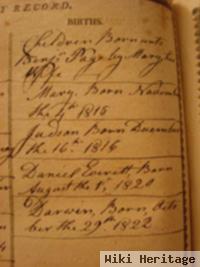 Y RECORD.
BIRTHS.
Children Born unto
Benj. Page by Mary his
Wife
Mary. Born Novem
the 4th 1815
Judson Born December
the 16th 1816
Daniel Everett, Born
August the 1st, 1820
Darwin, Born, Octo
ber the 29th 1822
Wiki Heritage